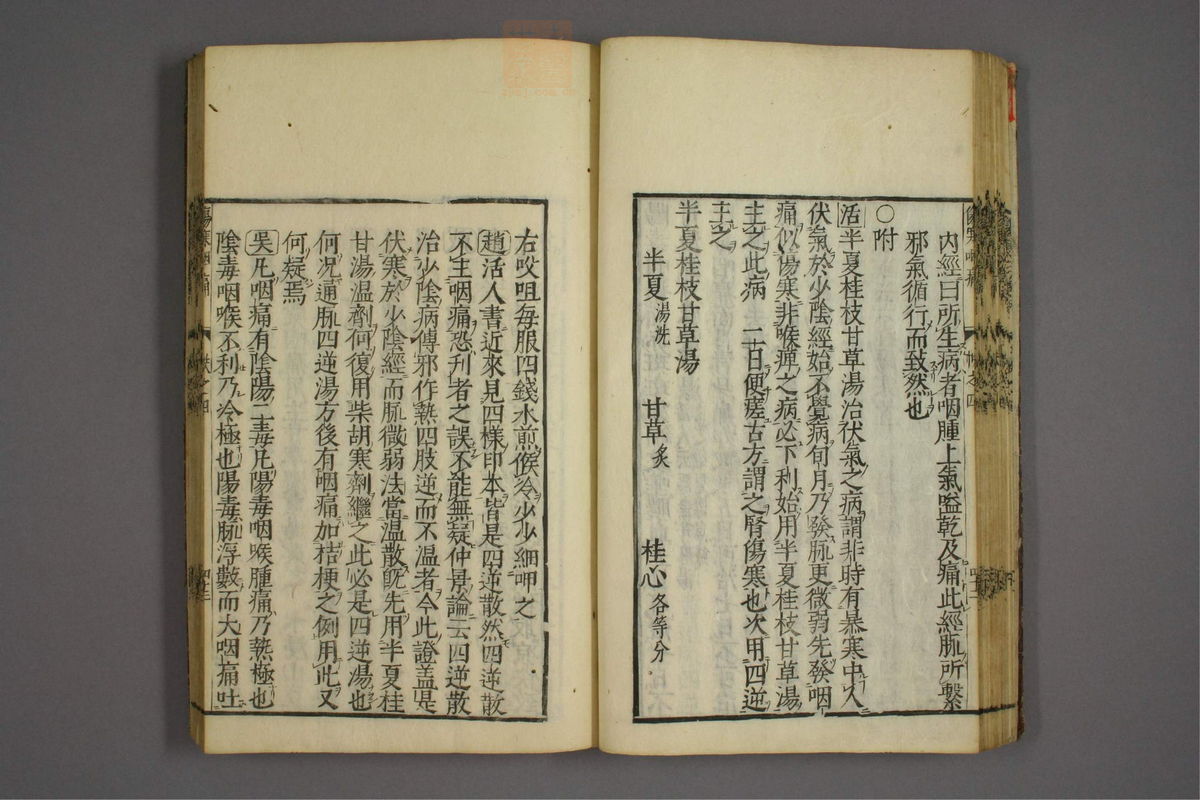 內經曰所生病者咽腫上氣嗌乾及痛此經脈所繫
邪氣循行而致然也
○附
活半夏桂枝甘草湯治伏氣之病謂非時有暴寒中人
伏氣於少陰經始不覺病旬月乃發脈更微弱先發咽
痛似傷寒非喉痺之病必下利始用半夏桂枝甘草湯
主之此病 二日便瘥古方謂之腎傷寒也次用四逆
主之
半夏桂枝甘草湯
半夏湯洗 甘草炙 桂心各等分
右㕮咀每服四錢水煎候冷少少細呷之
趙活人書近來見四樣印本皆是四逆散然四逆散
不主咽痛恐刋者之誤不能無疑仲景論云四逆散
治少陰病傳邪作熱四肢逆而不溫者今此證蓋是
伏寒於少陰經而脈微弱法當溫散旣先用半夏桂
甘湯溫劑何復用柴胡寒劑繼之此必是四逆湯也
何況通脈四逆湯方後有咽痛加桔梗之例用此又
何疑焉
吳凡咽痛有陰陽二毒凡陽毒咽喉腫痛乃熱極也
陰毒咽喉不利乃冷極也陽毒脈浮數而大咽痛吐
傷寒咽痛 卷之四 四十三